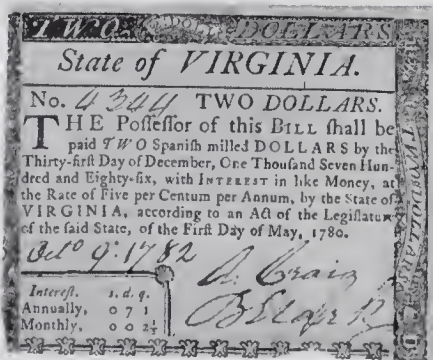 TWO DOLLARS
State of VIRGINIA.
No. 4344 TWO DOLLARS.
THE Poſſeſſor of this BILL ſhall be
paid TWO Spaniſh milled DOLLARS by the
Thirty-firſt Day of December, One Thouſand Seven Hun-
dred and Eighty-ſix, with INTEREST in like Money, at
the Rate of Five per Centum per Annum, by the State of
VIRGINIA, according to an Act of the Legiſlature
of the ſaid State, of the Firſt Day of May, 1780.
Octo 9: 1782
A. Craig
Intereſt. s. d. q.
Annually, 0 7 1
Monthly, 0 0 2½
TWO DOLLARS